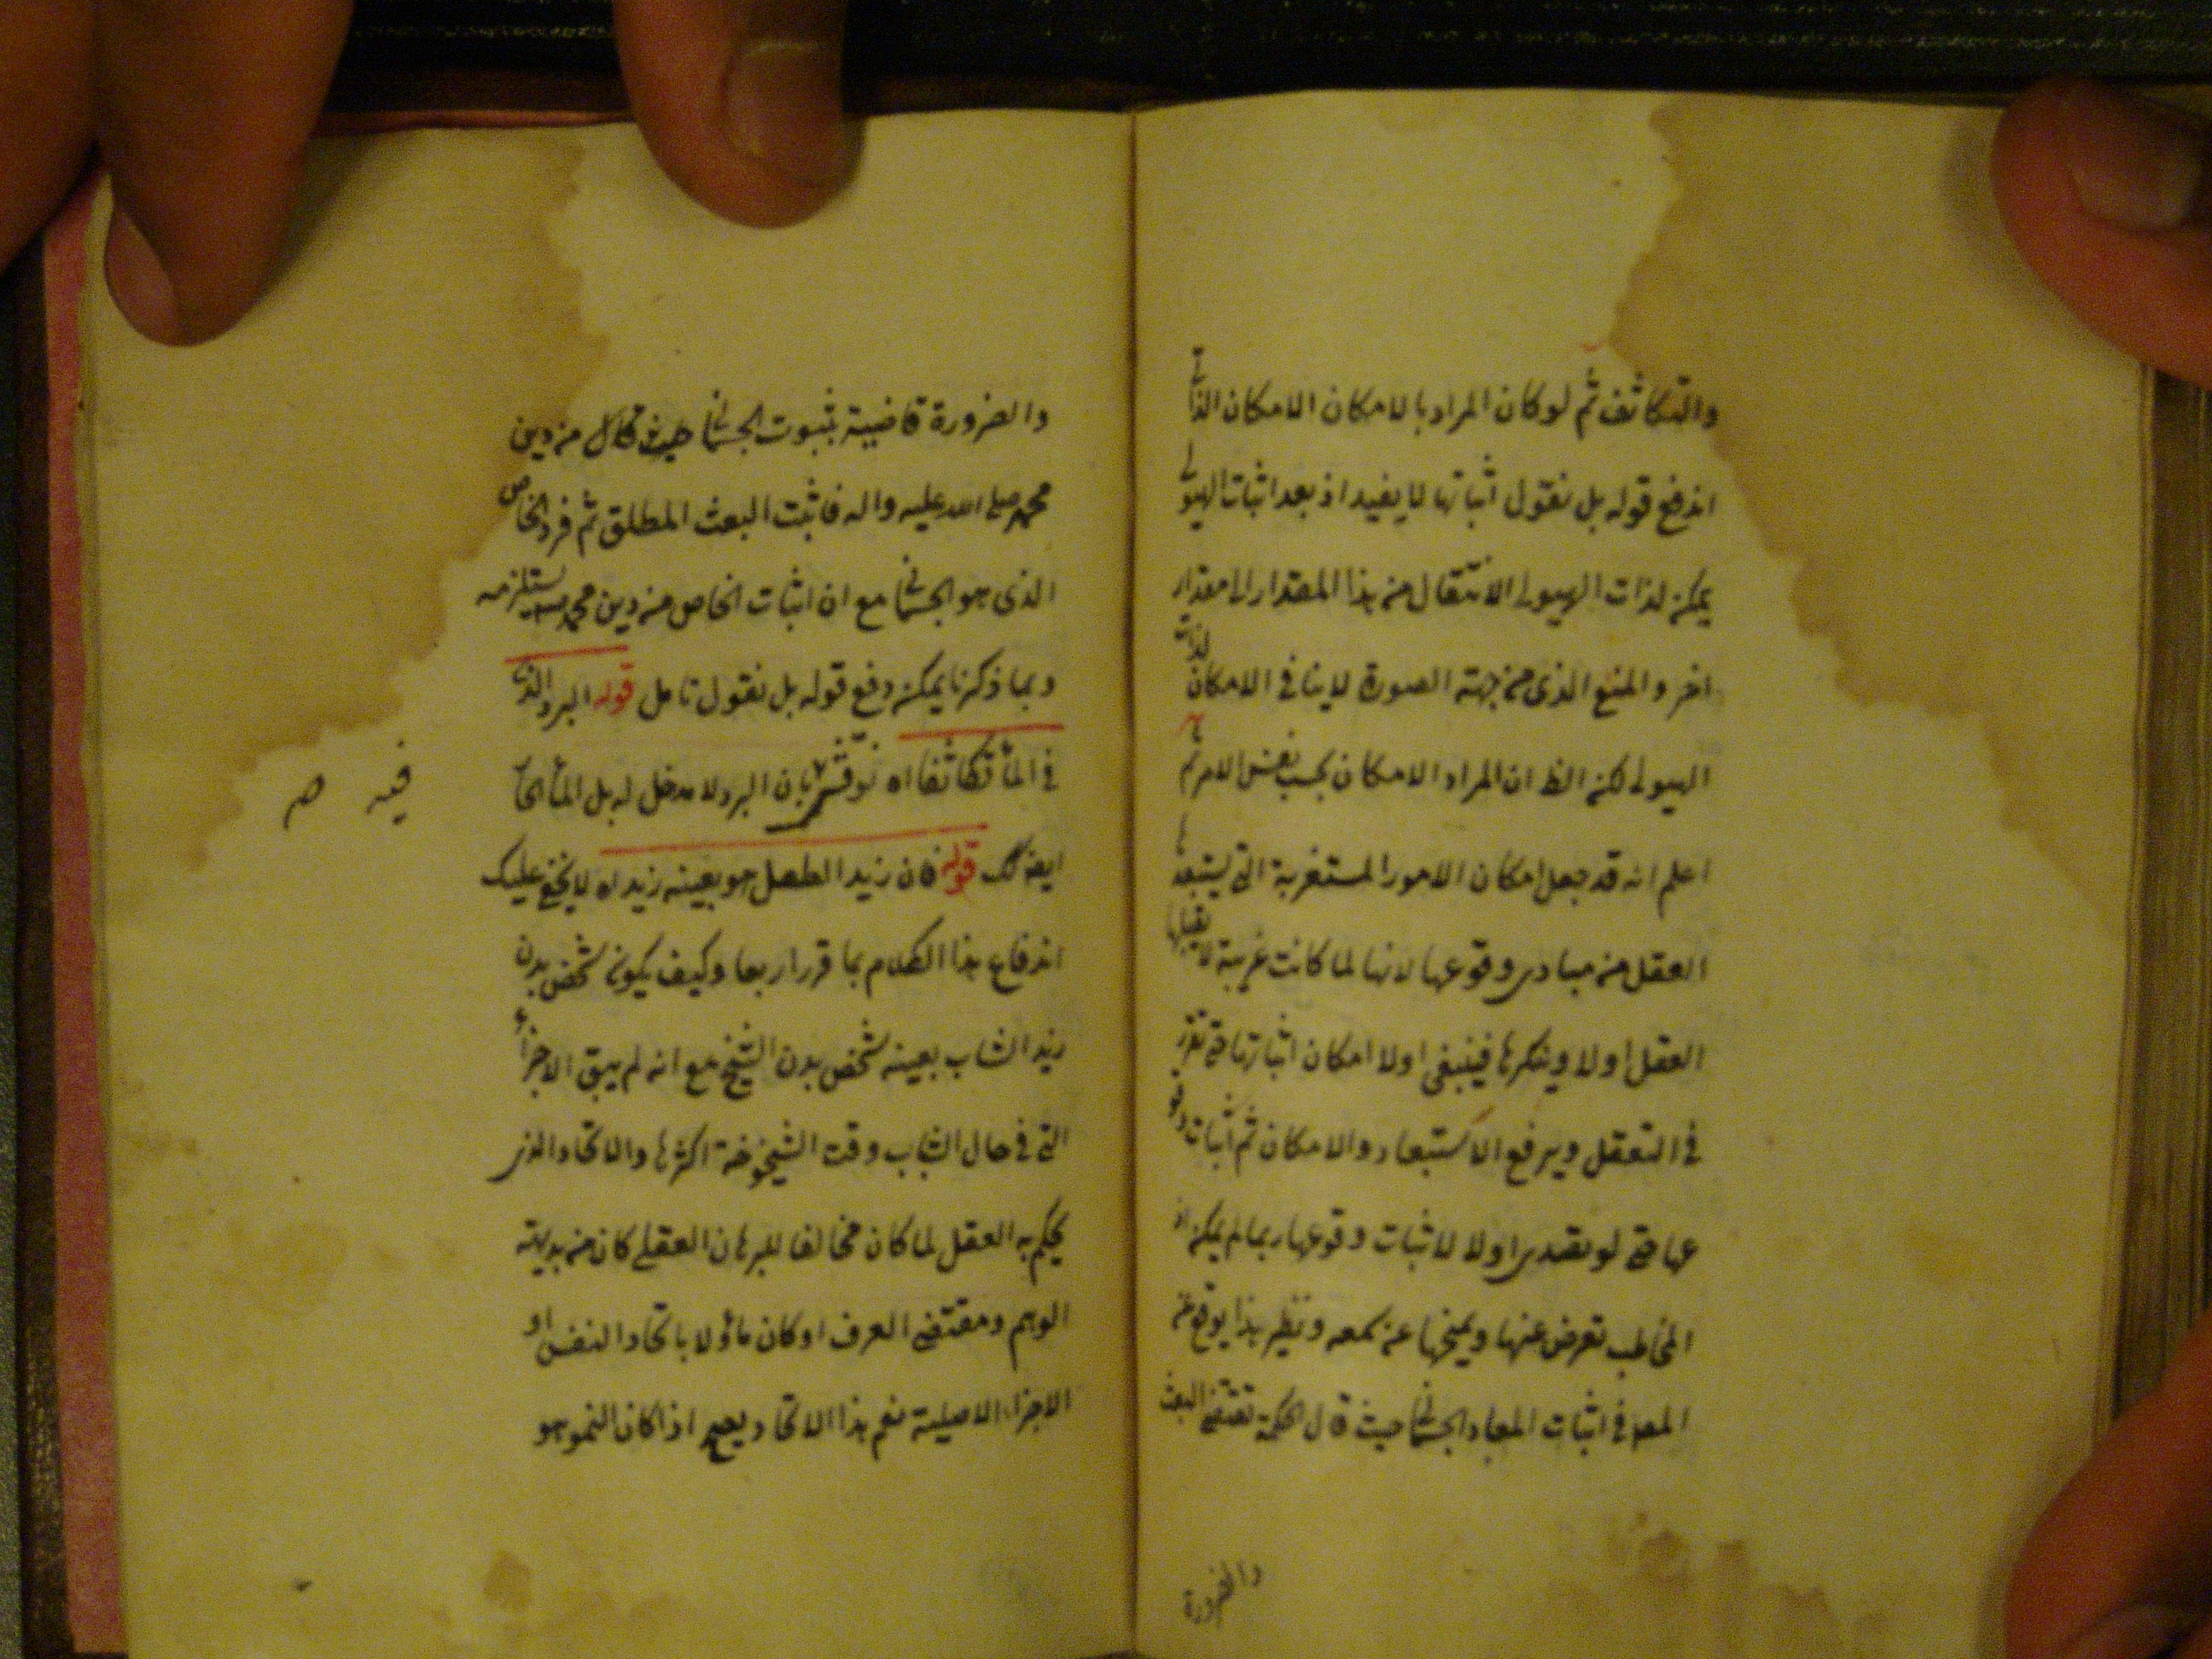 والتكاثف ثم لو كان المراد بالامكان الامكان الذاتي
اندفع قوله بل نقول اثباتها لا يفيد اذ بعد اثبات الهيولي
يمكن لذات الهيولى الانتقال من هذا المقدار الى مقدار
اخر والمنع الذى من جهته الصورة لا ينافي الامكان لذات
الهيولى لكن الظ ان المراد الامكان بحسب نفس الامر ثم
اعلم انه قد جعل امكان الامور المستغربة التي يستبعدها
العقل من مبادى وقوعها لانها لما كانت غريبة لا يقبلها
العقل اولا وينكرها فينبغى اولا امكان اثباتها حتى تقرر
في التعقل ويرفع الاستبعاد والامكان ثم اثبات وقو
عها حتى لو تصدى اولا لاثبات وقوعها ربما لم يمكن اذ
المخاطب تعرض عنها ويمنحها عن سمعه ونظير هذا يوقع من
المص في اثبات المعاد الجسماني حيث قال الحكمة تقتضى البعث
والضرورة
والضرورة قاضية بثبوت الجسماني حيث قال من دين
محمد صلى الله عليه واله فاثبت البعث المطلق ثم فرد الخاص
الذى هو الجسماني مع ان اثبات الخاص من دين محمد ص يستلزمه
وبما ذكرنا يمكن دفع قوله بل نقول تامل قوله البرد الذى
في الماء تكاثفا اه نوقش بان البرد لا مدخل له بل الماء الحار
فيه ص
ايضا كك قوله فان زيد الطفل هو بعينه زيد اه لا يخفى عليك
اندفاع هذا الكلام بما قرر اربعا وكيف يكون شخص بدن
زيد الشاب بعينه شخص بدن الشيخ مع انه لم يبق الاجزاء
التي في حال الشباب وقت الشيخوخة اكثرها والاتحاد الذى
يحكم به العقل لما كان مخالفا للبرهان العقلى كان من بديهة
الوهم ومقتضى العرف او كان مأولا باتحاد النفس او
الاجزاء الاصلية نعم هذا الاتحاد يصح اذا كان النمو هو